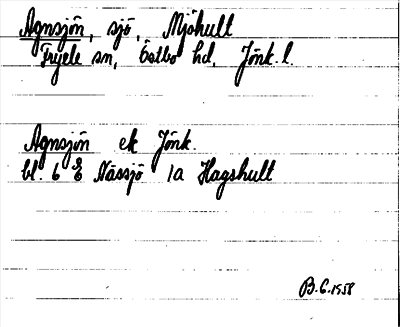 Agnsjön, sjö, Mjöhult
Tryele sn, Östbo hd, Jönk. l.
Agnsjön ek Jönk.
bl. 6 E Nässjö 1a Hagshult
B.G. 1958